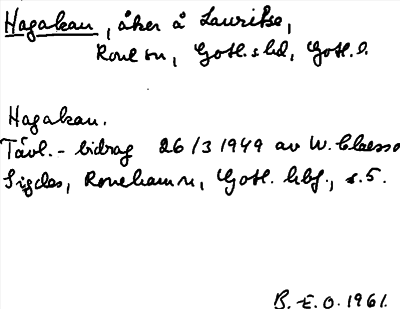 Hagakau, åker å Lauritse,
Rone sn, Gotl. s hd, Gotl. l.
Hagakau.
Tävl.- bidrag 26/3 1949 av W. Claesso
Sigdes, Ronehamn, Gotl. hbf., s. 5.
B. E. O. 1961.